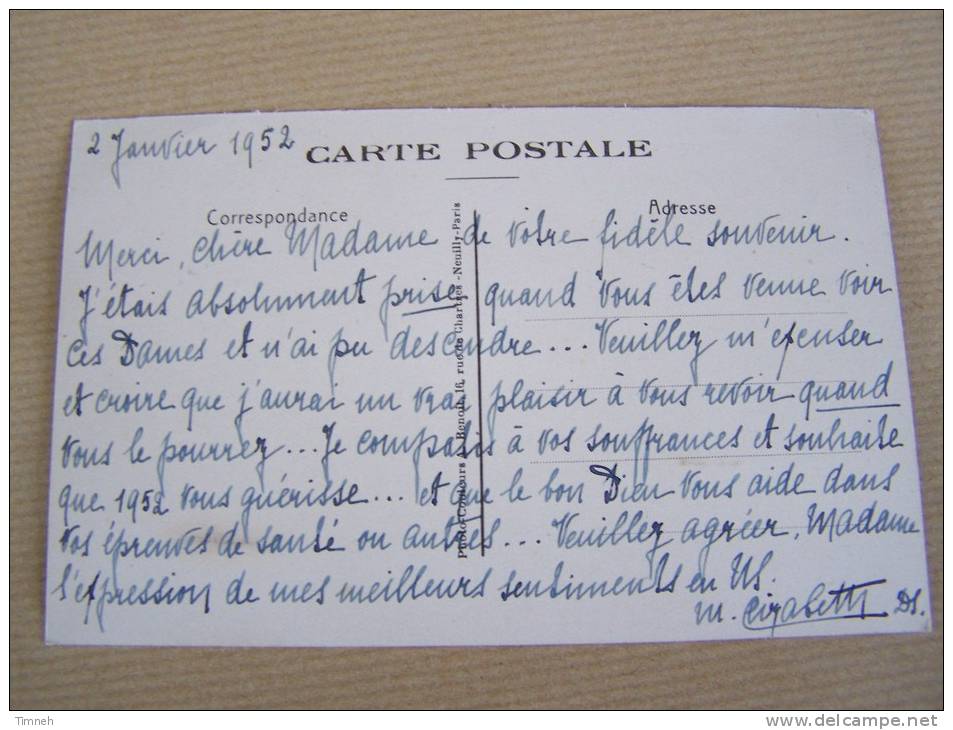 2 Janvier 1952
CARTE POSTALE
Correspondance
Adresse
Merci, chère Madame de votre fidèle souvenir.
J'étais absolument prise quand vous êtes venue voir
ces Dames et n'ai pu descendre... Veuillez m'excuser
et croire que j'aurai un vrai plaisir à vous revoir quand
vous le pourrez... Je compatis à vos souffrances et souhaite
que 1952 vous guérisse... et que le bon Dieu vous aide dans
vos épreuves de santé ou autres... Veuillez agréer, Madame
l'expression de mes meilleurs sentiments en NS.
m.
16, rue de Chartres - Neuilly-Paris
Timneh
www.delcampe.net